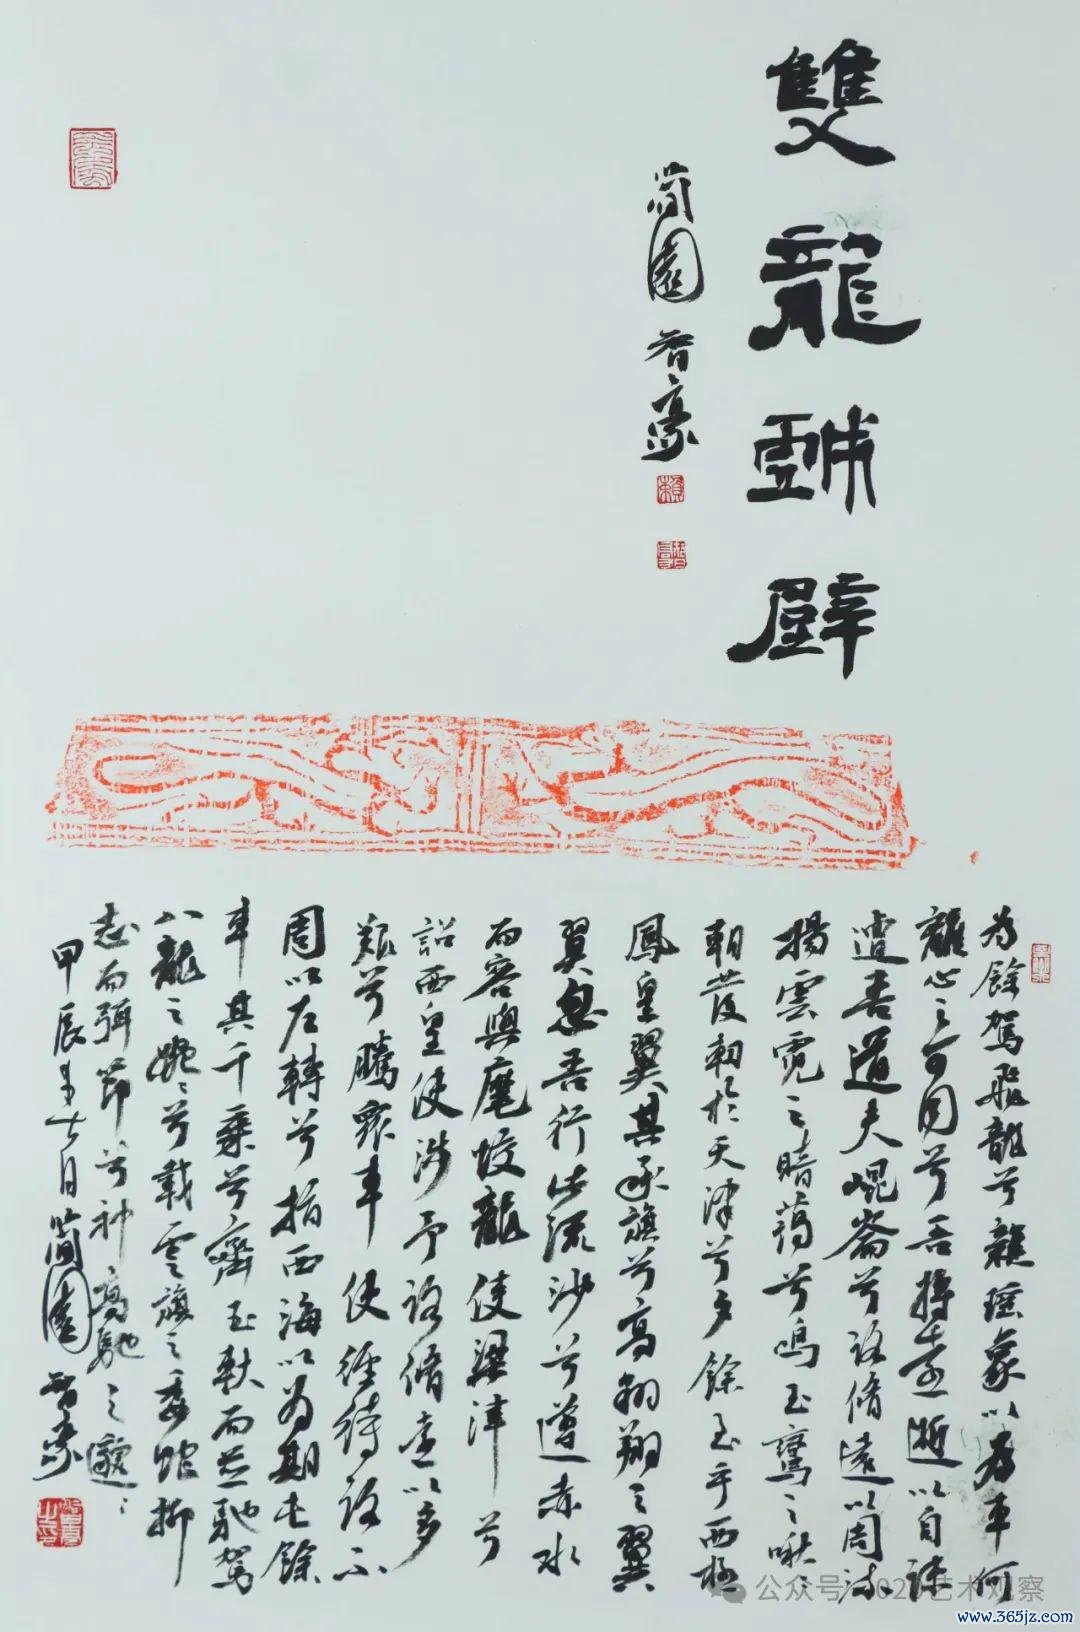 雙龍壁
簡園智豪
為餘駕飛龍兮雜瑤象以為車何
離心之可同兮吾將遠逝以自疏
邅吾道夫崐崙兮路脩遠以周流
揚雲霓之暗藹兮鳴玉鸞之啾々
朝發軔於天津兮夕餘至乎西極
鳳皇翼其承旗兮高翱翔之翼
翼忽吾行此流沙兮遵赤水
而容與麾蛟龍使梁津兮
詔西皇使涉予路脩遠以多
艱兮騰衆車使徑待路不
周以左轉兮指西海以為期屯餘
車其千乘兮齊玉軑而並馳駕
八龍之婉々兮載雲旗之委蛇抑
志而弭節兮神高馳之邈々
甲辰簡園智豪
公众号·2020艺术观察
www.365jz.com